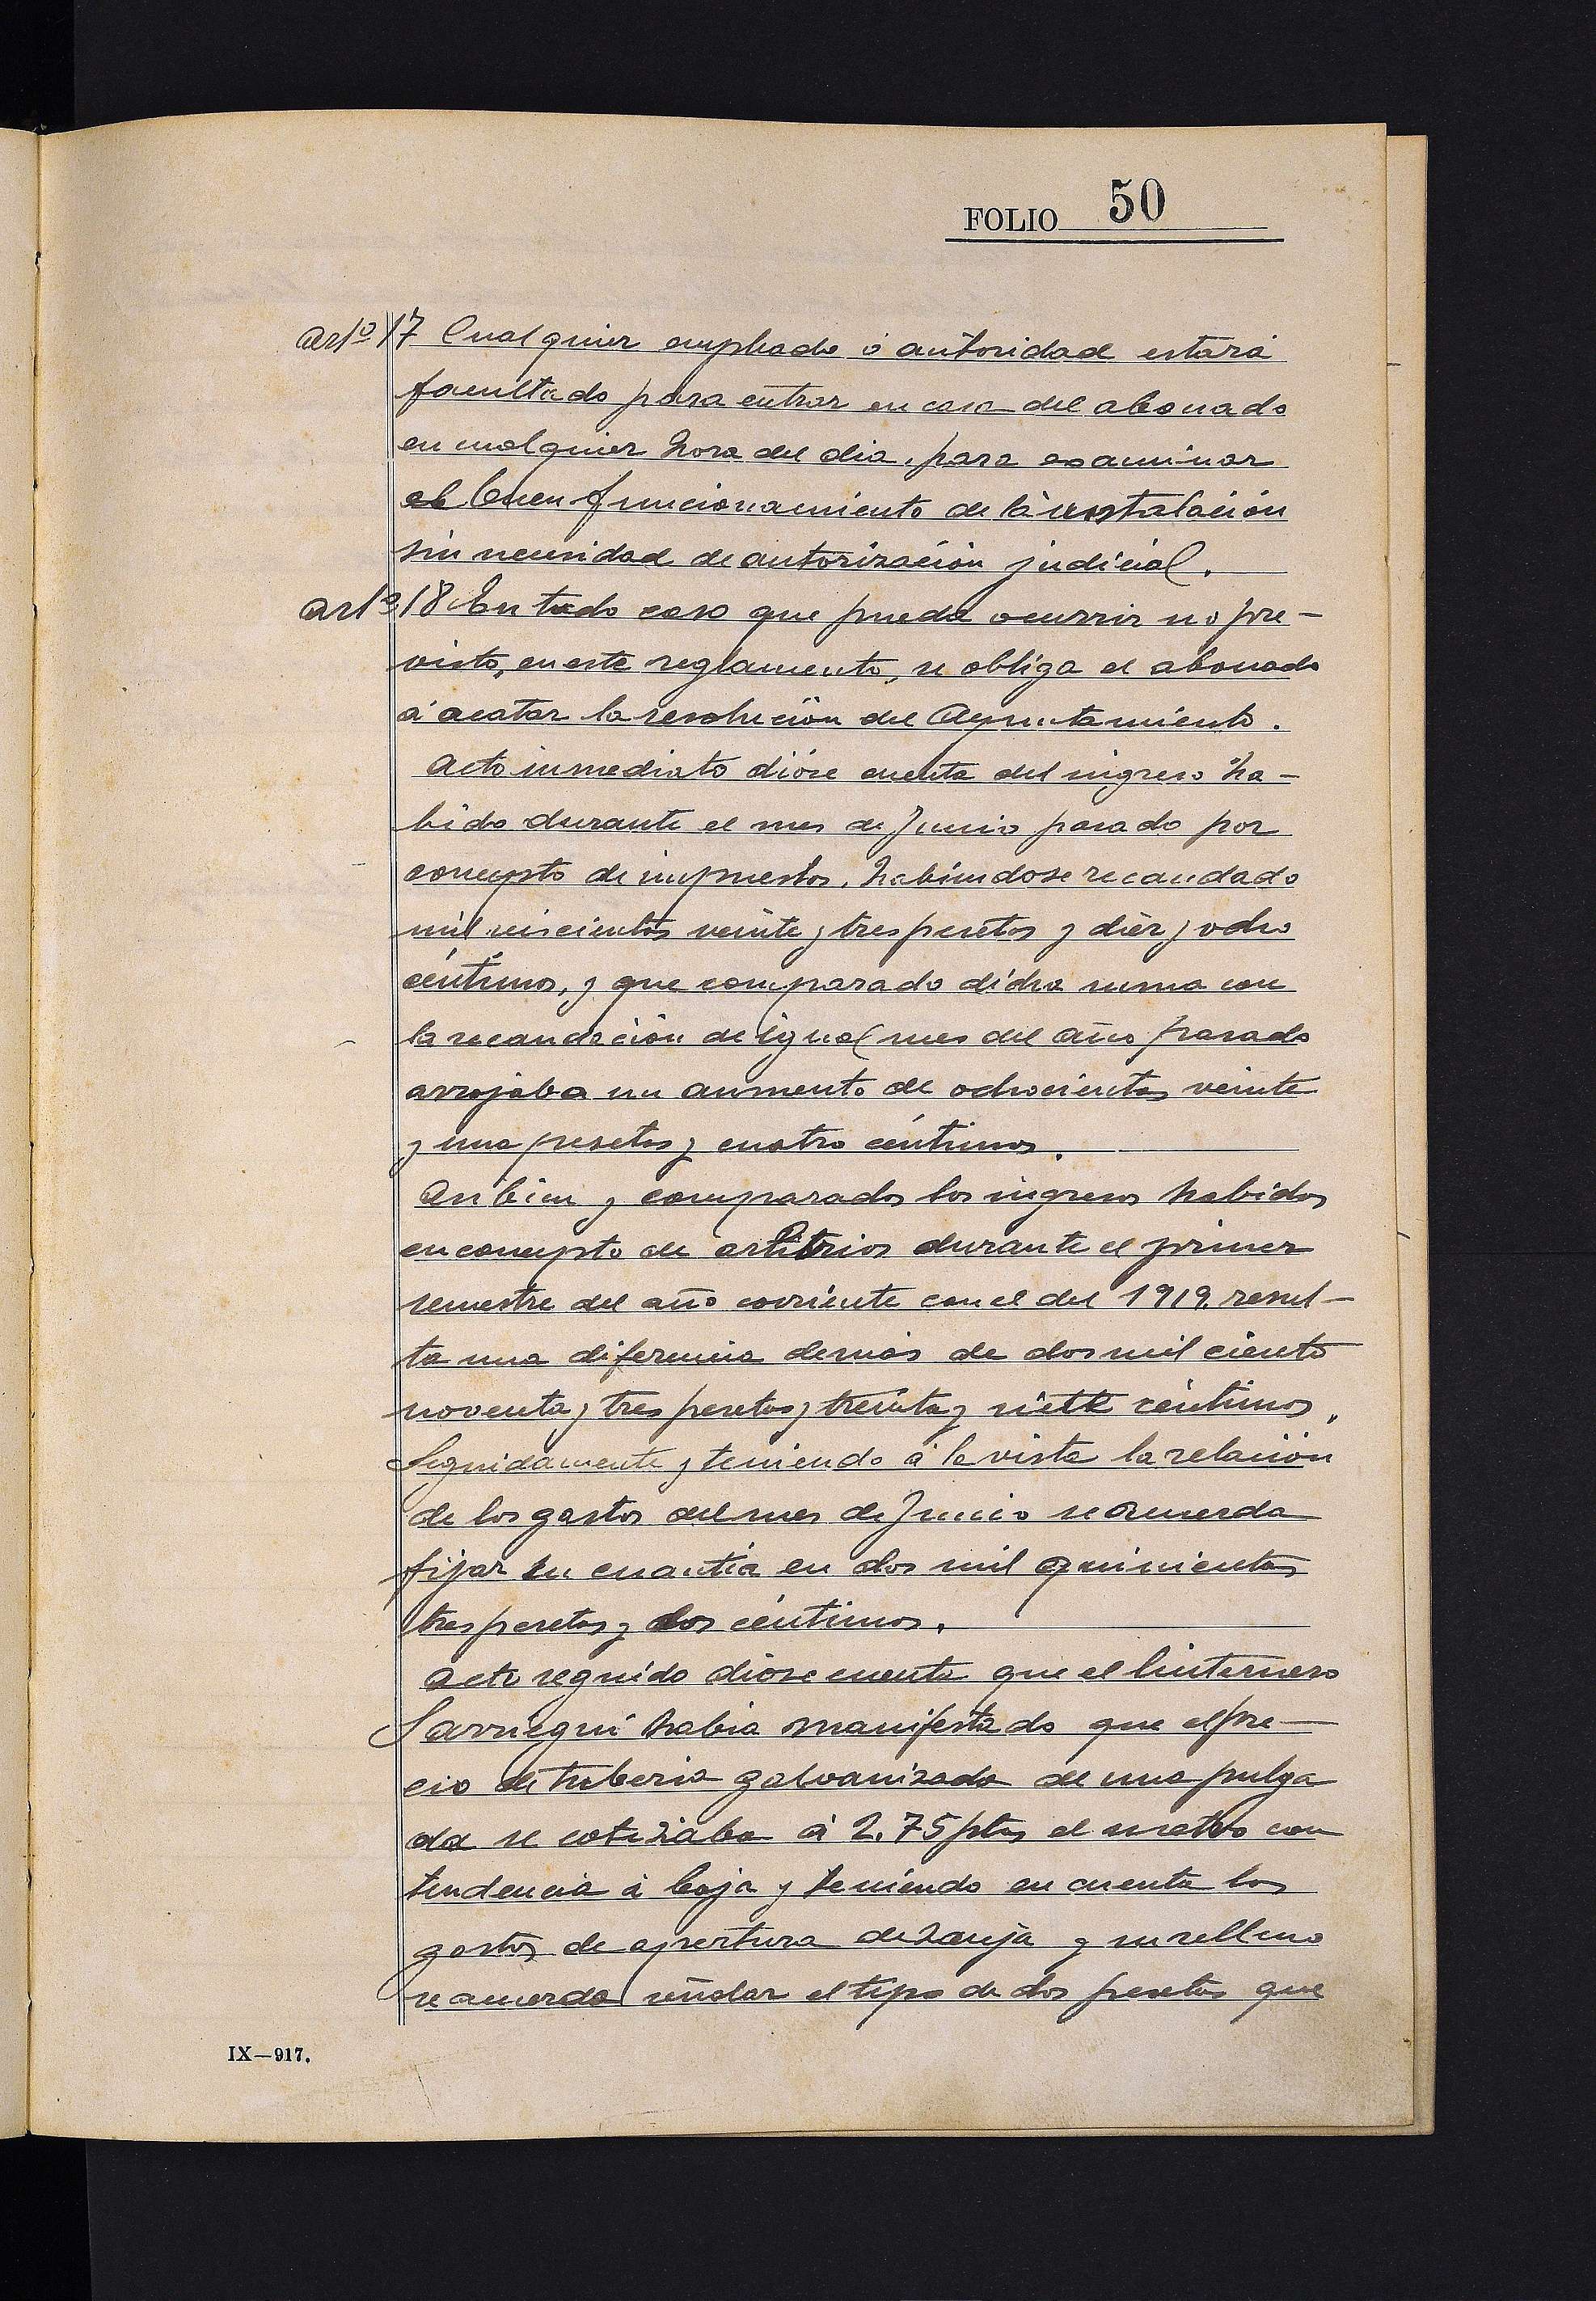 FOLIO 50
artº 17 Cualquier empleado ó autoridad estará
facultado para entrar en casa del abonado
en cualquier hora del dia, para examinar
el buen funcionamiento de la instalación
sin necesidad de autorización judicial.
artº 18 En todo caso que pueda ocurrir no pre-
visto, en este reglamento, se obliga el abonado
á acatar la resolución del Ayuntamiento.
Acto inmediato dióse cuenta del ingreso ha-
bido durante el mes de Junio pasado por
concepto de impuestos, habiendose recaudado
mil seiscientas veinte y tres pesetas y diez y ocho
céntimos, y que comparado dicha suma con
la recaudación de igual mes del año pasado
arrojaba un aumento de ochocientas veinte
y una pesetas y cuatro céntimos.
Asi bien y comparados los ingresos habidos
en concepto de arbitrios durante el primer
semestre del año corriente con el del 1919 resul-
ta una diferencia demás de dos mil ciento
noventa y tres pesetas y treinta y siete céntimos.
Seguidamente y teniendo á la vista la relación
de los gastos del mes de Junio se acuerda
fijar su cuantia en dos mil quinientas
tres pesetas y dos céntimos.
Acto seguido dióse cuenta que el linternero
Sarriegui habia manifestado que el pre-
cio de tuberia galvanizada de una pulga
da se cotizaba á 2.75 ptas el metro con
tendencia á baja y teniendo en cuenta los
gastos de apertura de zanja y su relleno
se acuerda señalar el tipo de dos pesetas que
IX—917.